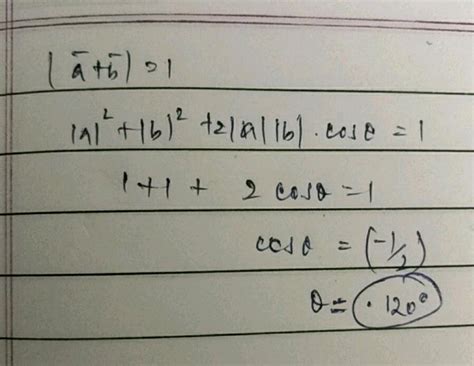 |a̅+b̅| = 1
|a|² + |b|² + 2|a||b|. cosθ = 1
1+1 + 2 cosθ = 1
cosθ = (-1/2)
θ = . 120°